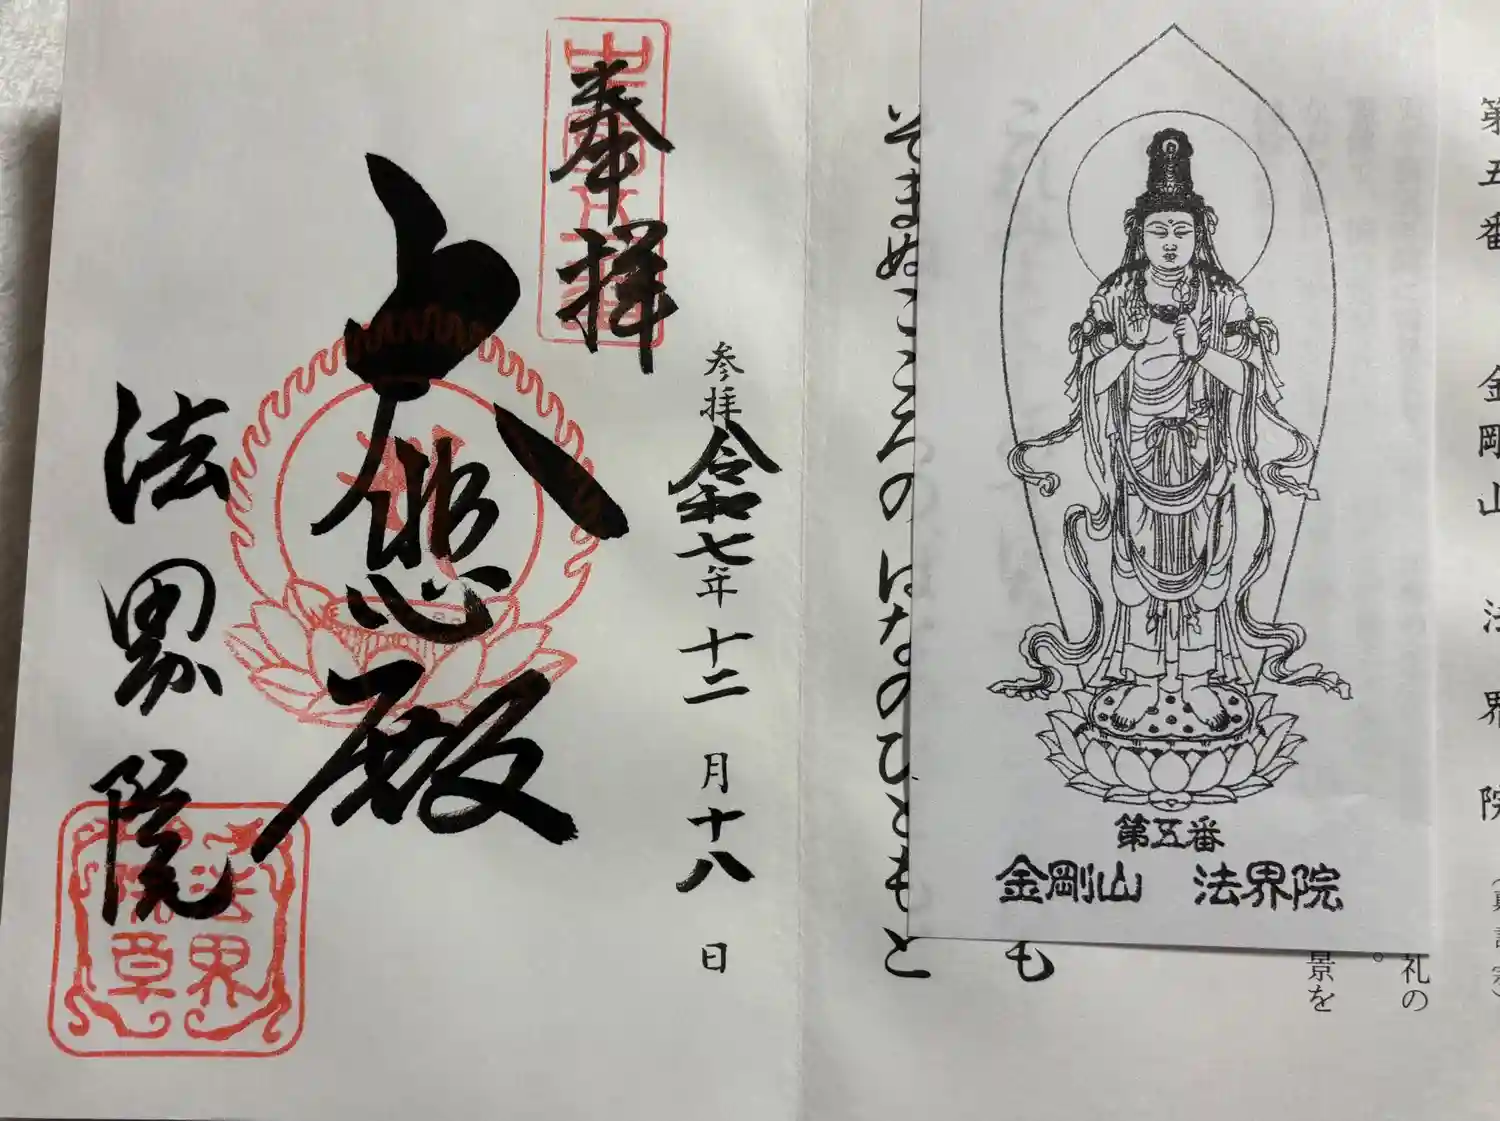 第五番 金剛山 法界院
礼の
景を
も
第五番
金剛山 法界院
そまぬこころのはなのひともと
奉拝
参拝令和七年十二月十八日
大悲殿
法界院
法界
院章